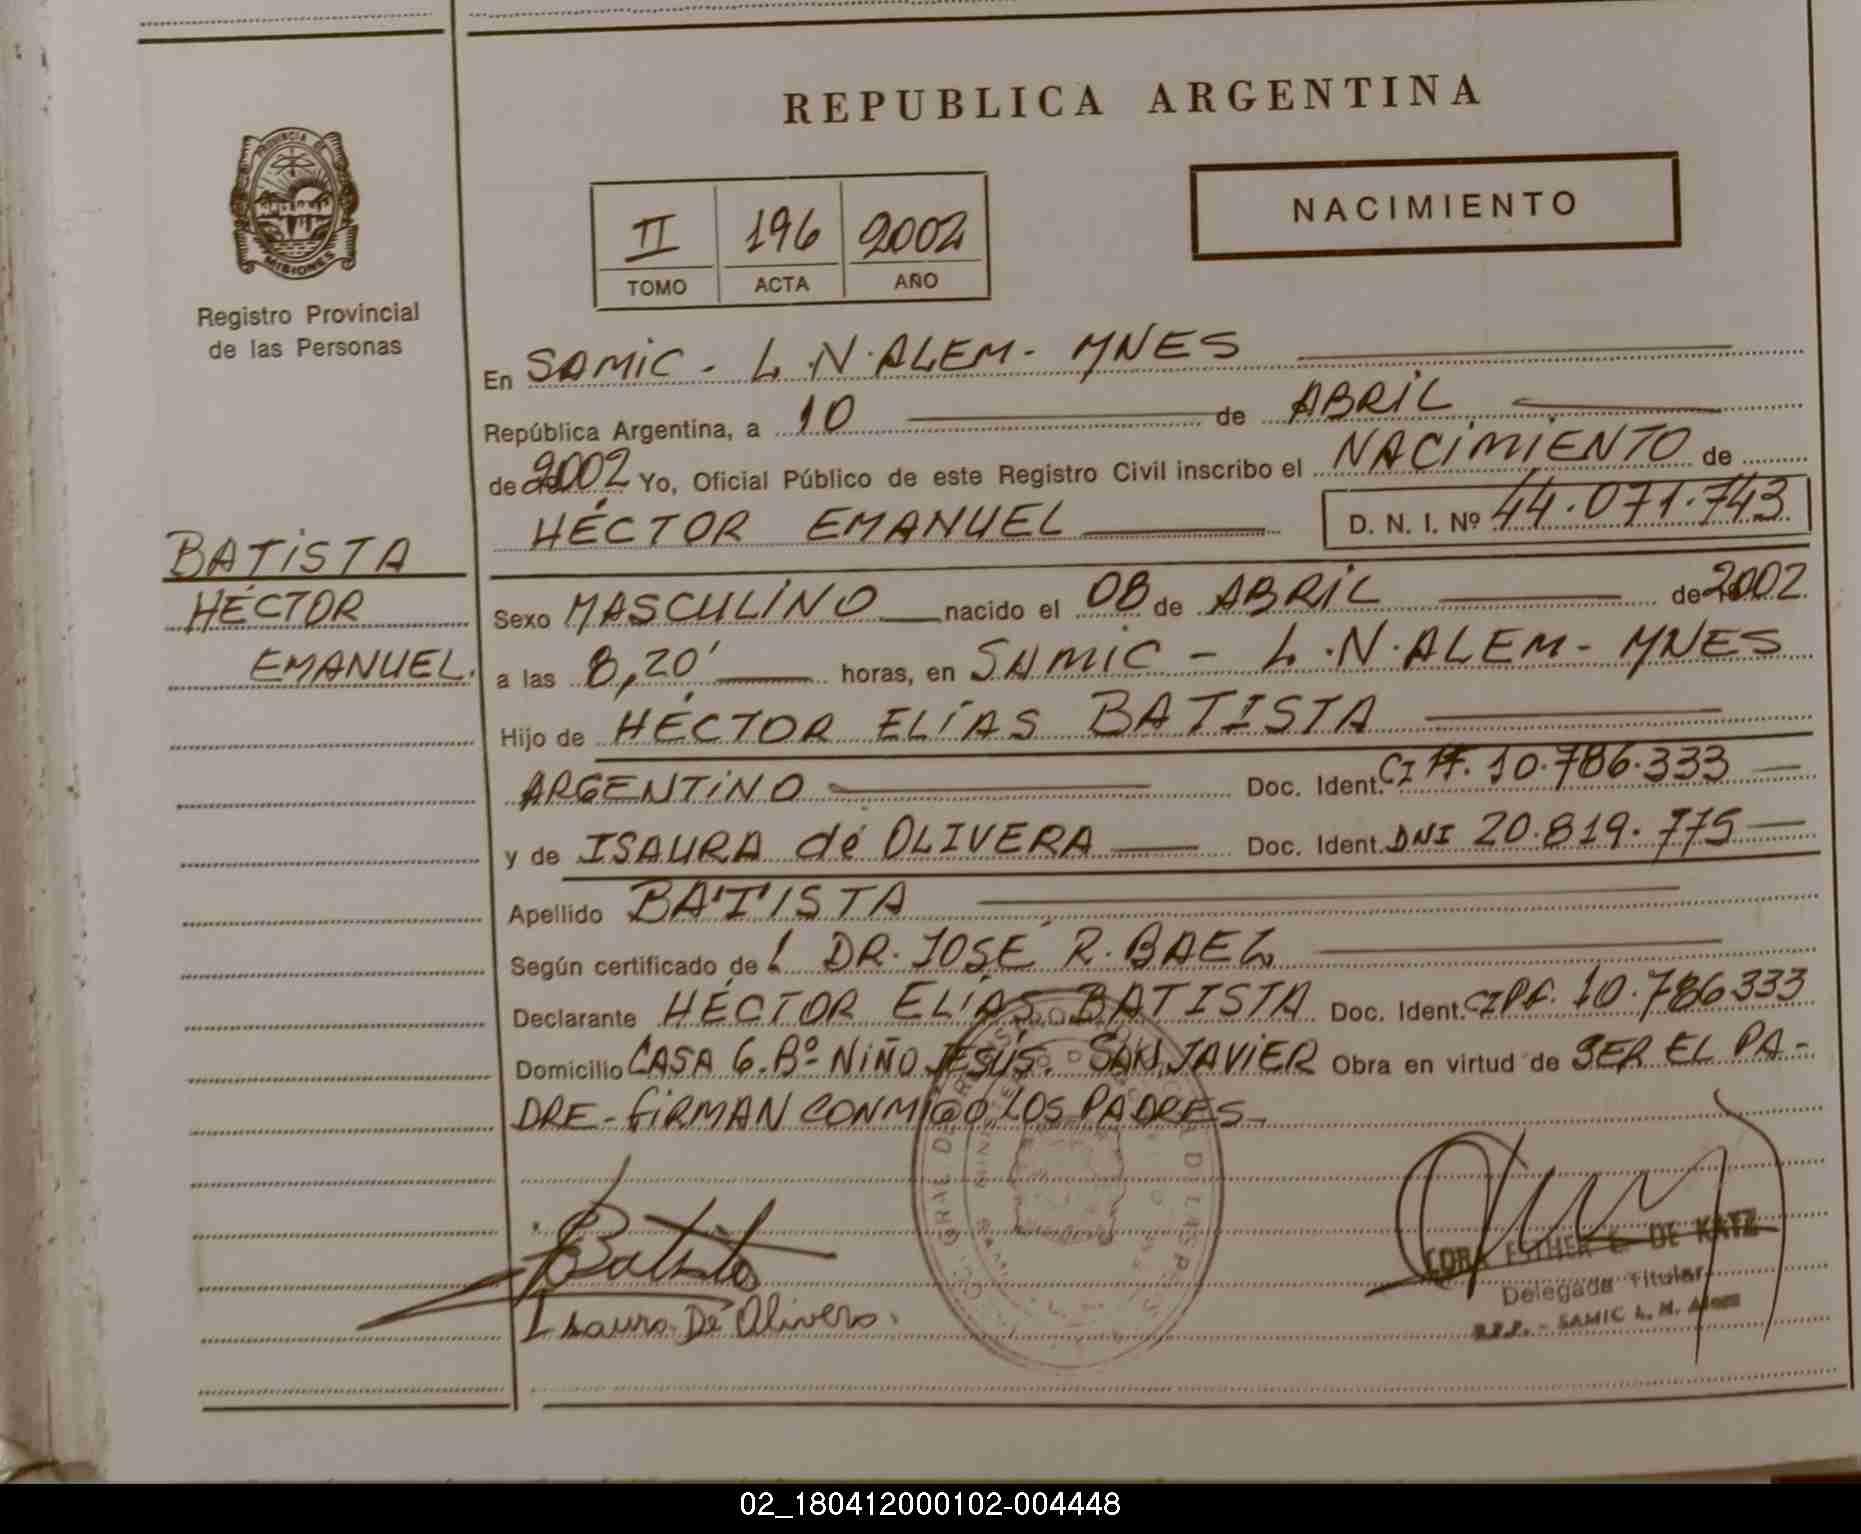 REPUBLICA ARGENTINA
PROVINCIA DE
MISIONES
Registro Provincial
de las Personas
II 196 2002
TOMO ACTA AÑO
NACIMIENTO
En SAMIC - L.N.ALEM - MNES
República Argentina, a 10 de ABRIL
de 2002 Yo, Oficial Público de este Registro Civil inscribo el NACIMIENTO de
HÉCTOR EMANUEL D. N. I. Nº 44.071.743
BATISTA
HÉCTOR
EMANUEL.
Sexo MASCULINO nacido el 08 de ABRIL de 2002
a las 8,20' horas, en SAMIC - L.N.ALEM - MNES
Hijo de HÉCTOR ELÍAS BATISTA
ARGENTINO Doc. Ident. CI 10.786.333
y de ISAURA de OLIVERA Doc. Ident. DNI 20.819.775
Apellido BATISTA
Según certificado de DR. JOSÉ R. BAEZ
Declarante HÉCTOR ELÍAS BATISTA Doc. Ident. CIPF. 10.786333
Domicilio CASA 6. Bº NIÑO JESÚS. SAN JAVIER Obra en virtud de SER EL PA-
DRE - FIRMAN CONMIGO LOS PADRES-
Batista
Isaura De Olivera.
CORA ESTHER DE KATZ
Delegada Titular
R.P.P. - SAMIC L. N. Alem
02_180412000102-004448